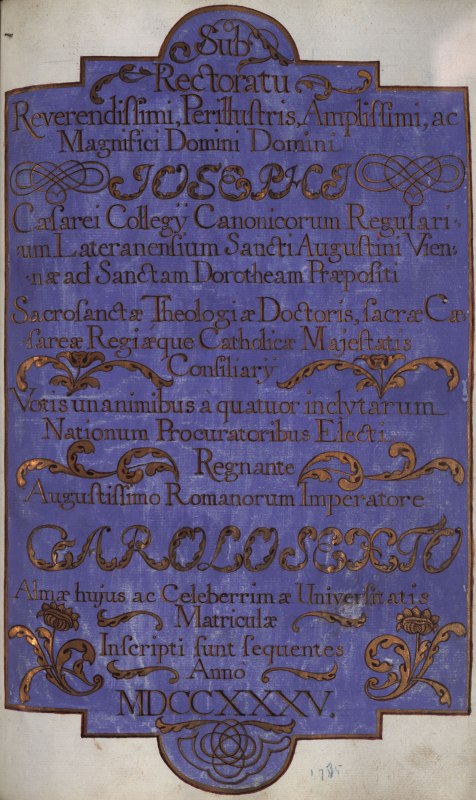 Sub
Rectoratu
Reverendissimi, Perillustris, Amplissimi, ac
Magnifici Domini Domini
IOSEPHI
Cæsarei Collegÿ Canonicorum Regulari-
-um Lateranensium Sancti Augustini Vien-
-næ ad Sanctam Dorotheam Præpositi
Sacrosanctæ Theologiæ Doctoris, sacræ Cæ-
sareæ Regiæque Catholicæ Majestatis
Consiliarÿ
Votis unanimibus à quatuor inclytarum
Nationum Procuratoribus Electi
Regnante
Augustissimo Romanorum Imperatore
CAROLO SEXTO
Almæ hujus ac Celeberrimæ Universitatis
Matriculæ
Inscripti sunt sequentes
Anno
MDCCXXXV.
1735